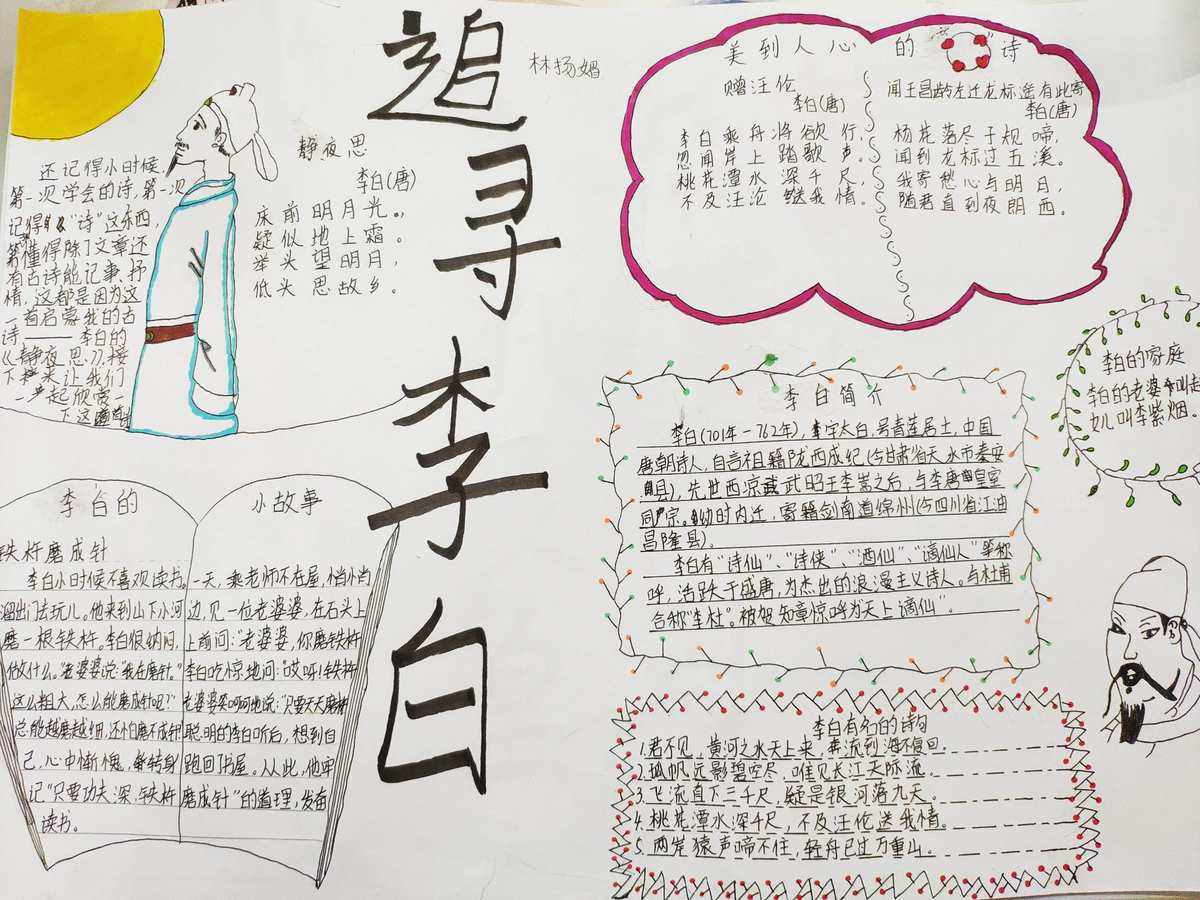 追寻李白
林扬媚
还记得小时候,
第一次学会的诗,第一次
记得“诗”这东西,
懂得除了文章还
有古诗能记事、抒
情,这都是因为这
一首启蒙我的古
诗——李白的
《静夜思》,接
下来让我们
一起欣赏一
下这
静夜思
李白(唐)
床前明月光,
疑似地上霜。
举头望明月,
低头思故乡。
美到人心的诗
赠汪伦
李白(唐)
李白乘舟将欲行,
忽闻岸上踏歌声。
桃花潭水深千尺,
不及汪沦送我情。
闻王昌龄左迁龙标遥有此寄
李白(唐)
杨花落尽子规啼,
闻到龙标过五溪。
我寄愁心与明月,
随君直到夜朗西。
李白的家庭
李白的老婆叫赵
女儿叫李紫烟.
李白简介
李白(701年-762年),字太白,号青莲居士,中国
唐朝诗人,自言祖籍陇西成纪(今甘肃省天水市秦安
县),先世西凉武昭王李暠之后,与李唐皇室
同宗。幼时内迁,寄籍剑南道绵州(今四川省江油
昌隆县).
李白有“诗仙”、“诗侠”、“酒仙”、“谪仙人”等称
呼,活跃于盛唐,为杰出的浪漫主义诗人。与杜甫
合称“李杜”。被贺知章惊呼为天上谪仙”.
李白的小故事
铁杵磨成针
李白小时候不喜欢读书。一天,乘老师不在屋,悄悄
溜出门去玩儿。他来到山下小河边,见一位老婆婆,在石头上
磨一根铁杵。李白很纳闷,上前问:“老婆婆,你磨铁杵
做什么。”老婆婆说:“我在磨针。”李白吃惊地问:“哎呀!铁杵
这么粗大,怎么能磨成针呢?”老婆婆笑呵呵地说:“只要天天磨
总能越磨越细,还怕磨不成针聪明的李白听后,想到自
己,心中惭愧,转身跑回了书屋。从此,他牢
记“只要功夫深,铁杵磨成针”的道理,发奋
读书。
李白有名的诗句
1.君不见,黄河之水天上来,奔流到海不复回。
2.孤帆远影碧空尽,唯见长江天际流.
3.飞流直下三千尺,疑是银河落九天。
4.桃花潭水深千尺,不及汪伦送我情。
5.两岸猿声啼不住,轻舟已过万重山。